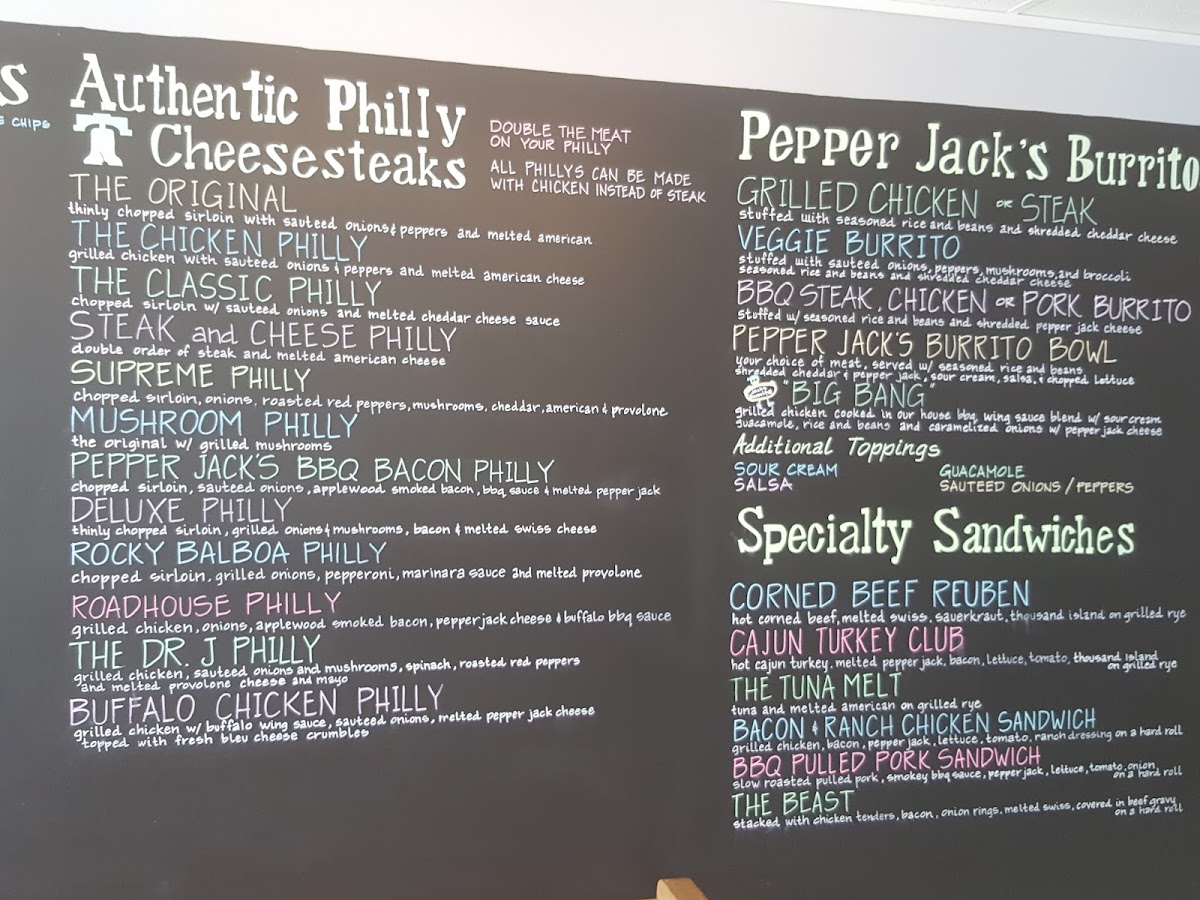 s
CHIPS
Authentic Philly
Cheesesteaks
DOUBLE THE MEAT
ON YOUR PHILLY
ALL PHILLYS CAN BE MADE
WITH CHICKEN INSTEAD OF STEAK
THE ORIGINAL
thinly chopped sirloin with sauteed onions & peppers and melted american
THE CHICKEN PHILLY
grilled chicken with sauteed onions & peppers and melted american cheese
THE CLASSIC PHILLY
chopped sirloin w/ sauteed onions and melted cheddar cheese sauce
STEAK and CHEESE PHILLY
double order of steak and melted american cheese
SUPREME PHILLY
chopped sirloin, onions, roasted red peppers, mushrooms, cheddar, american & provolone
MUSHROOM PHILLY
the original w/ grilled mushrooms
PEPPER JACK'S BBQ BACON PHILLY
chopped sirloin, sauteed onions, applewood smoked bacon, bbq sauce & melted pepper jack
DELUXE PHILLY
thinly chopped sirloin, grilled onions & mushrooms, bacon & melted swiss cheese
ROCKY BALBOA PHILLY
chopped sirloin, grilled onions, pepperoni, marinara sauce and melted provolone
ROADHOUSE PHILLY
grilled chicken, onions, applewood smoked bacon, pepper jack cheese & buffalo bbq sauce
THE DR. J PHILLY
grilled chicken, sauteed onions and mushrooms, spinach, roasted red peppers
and melted provolone cheese and mayo
BUFFALO CHICKEN PHILLY
grilled chicken w/ buffalo wing sauce, sauteed onions, melted pepper jack cheese
topped with fresh bleu cheese crumbles
Pepper Jack's Burrito
GRILLED CHICKEN OR STEAK
stuffed with seasoned rice and beans and shredded cheddar cheese
VEGGIE BURRITO
stuffed with sauteed onions, peppers, mushrooms, and broccoli
seasoned rice and beans and shredded cheddar cheese
BBQ STEAK, CHICKEN OR PORK BURRITO
stuffed w/ seasoned rice and beans and shredded pepper jack cheese
PEPPER JACK'S BURRITO BOWL
your choice of meat, served w/ seasoned rice and beans
shredded cheddar & pepper jack, sour cream, salsa, & chopped lettuce
"BIG BANG"
grilled chicken cooked in our house bbq, wing sauce blend w/ sour cream
guacamole, rice and beans and caramelized onions w/ pepper jack cheese
Additional Toppings
SOUR CREAM
SALSA
GUACAMOLE
SAUTEED ONIONS / PEPPERS
Specialty Sandwiches
CORNED BEEF REUBEN
hot corned beef, melted swiss, sauerkraut, thousand island on grilled rye
CAJUN TURKEY CLUB
hot cajun turkey, melted pepper jack, bacon, lettuce, tomato, thousand island
on grilled rye
THE TUNA MELT
tuna and melted american on grilled rye
BACON & RANCH CHICKEN SANDWICH
grilled chicken, bacon, pepper jack, lettuce, tomato, ranch dressing on a hard roll
BBQ PULLED PORK SANDWICH
slow roasted pulled pork, smokey bbq sauce, pepper jack, lettuce, tomato, onion,
on a hard roll
THE BEAST
stacked with chicken tenders, bacon, onion rings, melted swiss, covered in beef gravy
on a hard roll